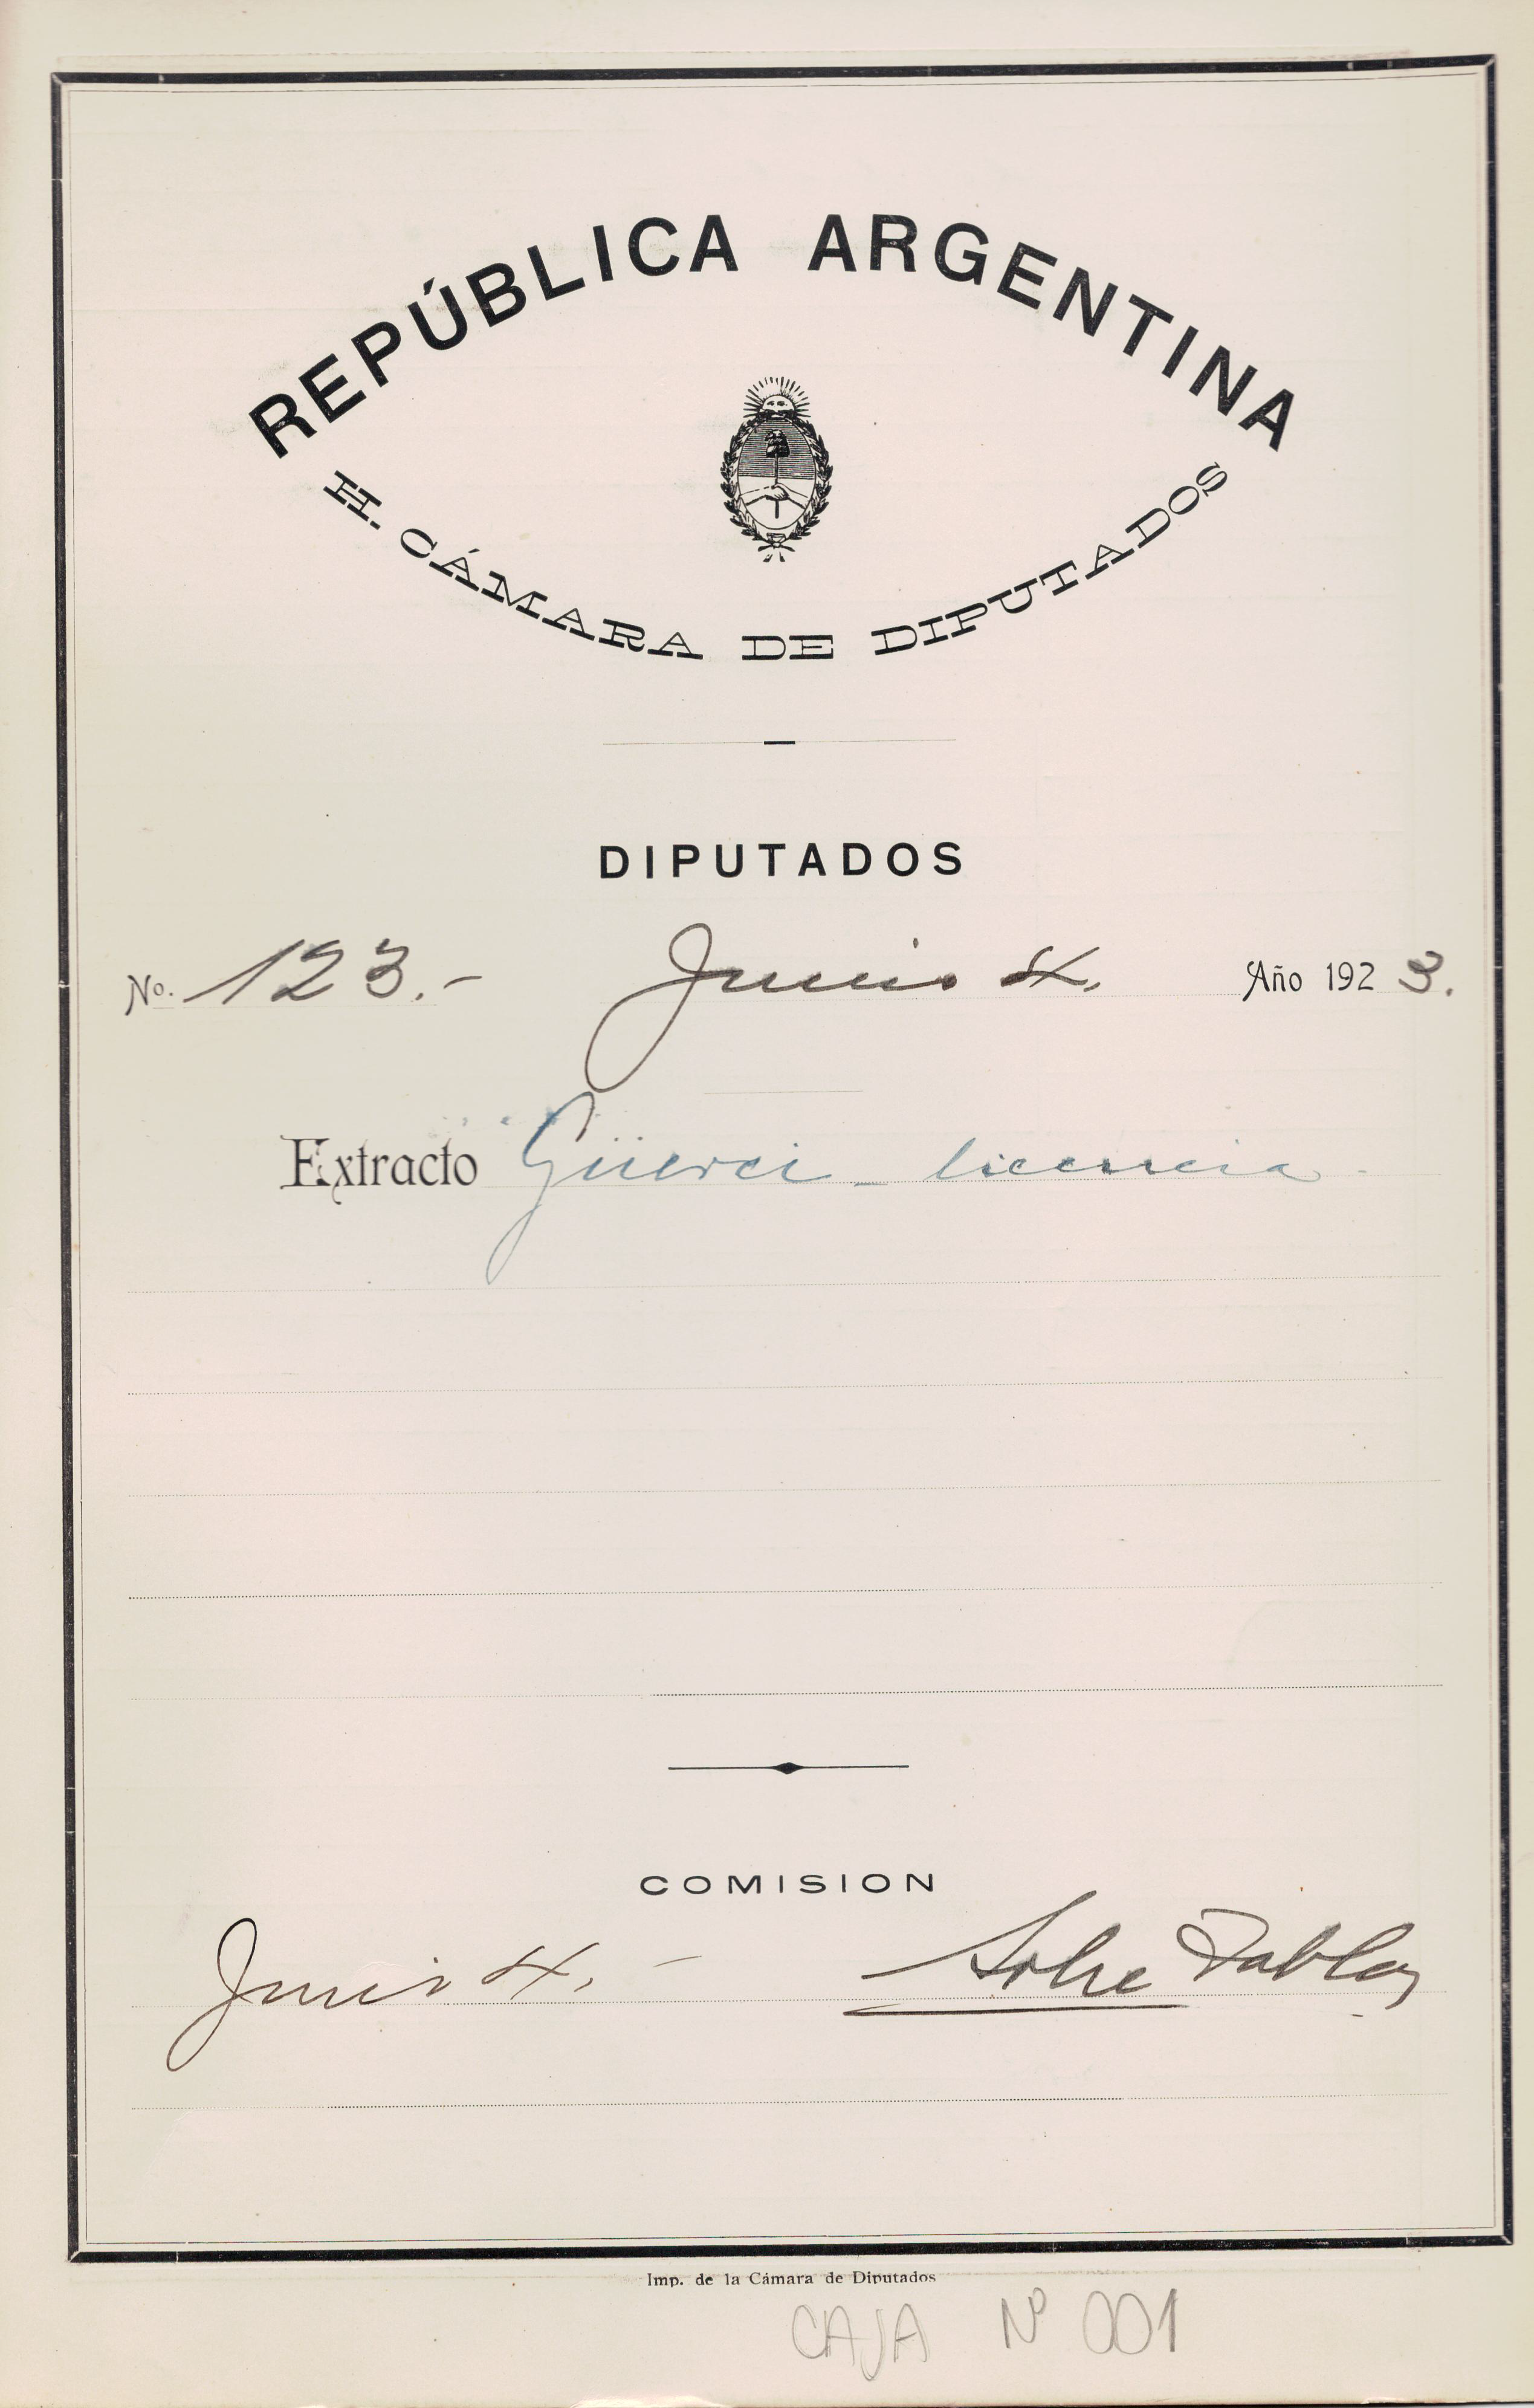 REPÚBLICA ARGENTINA
H. CÁMARA DE DIPUTADOS
DIPUTADOS
No. 123.- Junio 4. Año 1923.
Extracto Güerci - licencia -
COMISION
Junio 4. - Sobre Tablas
Imp. de la Cámara de Diputados
CAJA Nº 001